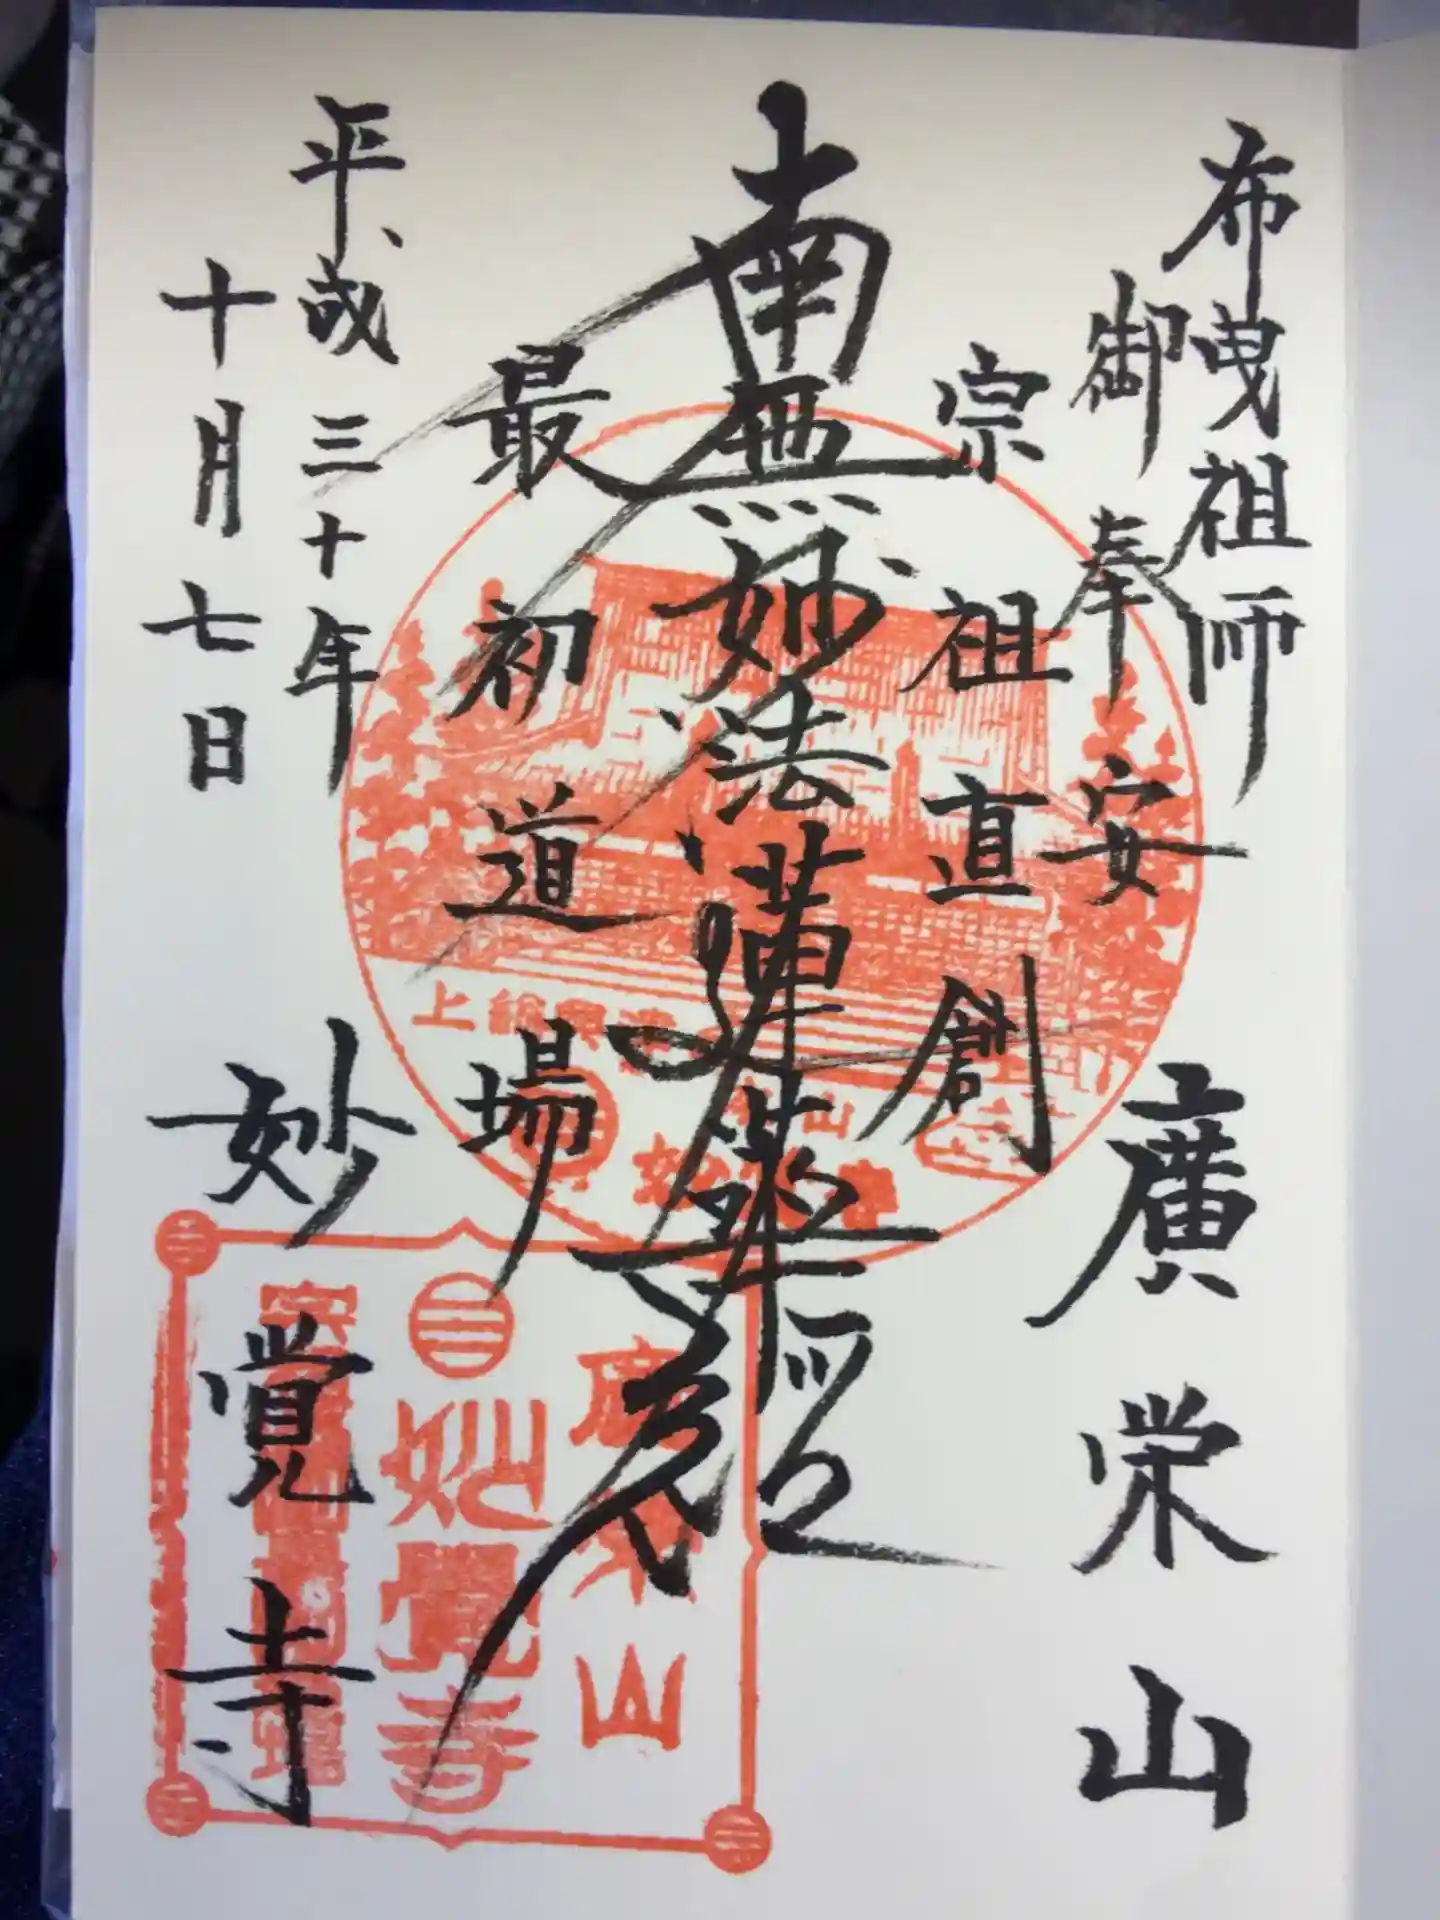 布曳祖師
御奉安
廣栄山
宗祖直創
南無妙法蓮華経
最初道場
平成三十年
十月七日
妙覚寺
上総興津
妙覺寺
山